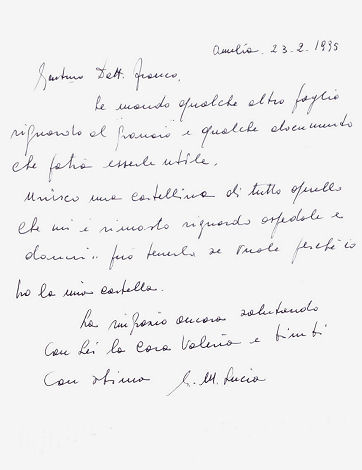 Amelia. 23.2.1995
Gentmo Dott. Franco,
Le mando qualche altro foglio
riguardo al e qualche documento
che potrà esserle utile.
Unisco una cartellina di tutto quello
che mi è rimasto riguardo ospedale e
.. può tenerla se vuole perché io
ho la mia cartella.
La ringrazio ancora salutando
con Lei la cara Valeria e bimbi
Con stima M. Lucia